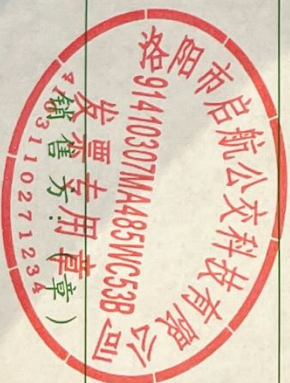 洛阳市启航公交科技有限公司
91410307MA485WC53B
发票专用章
销售方:(章)
4103110271234